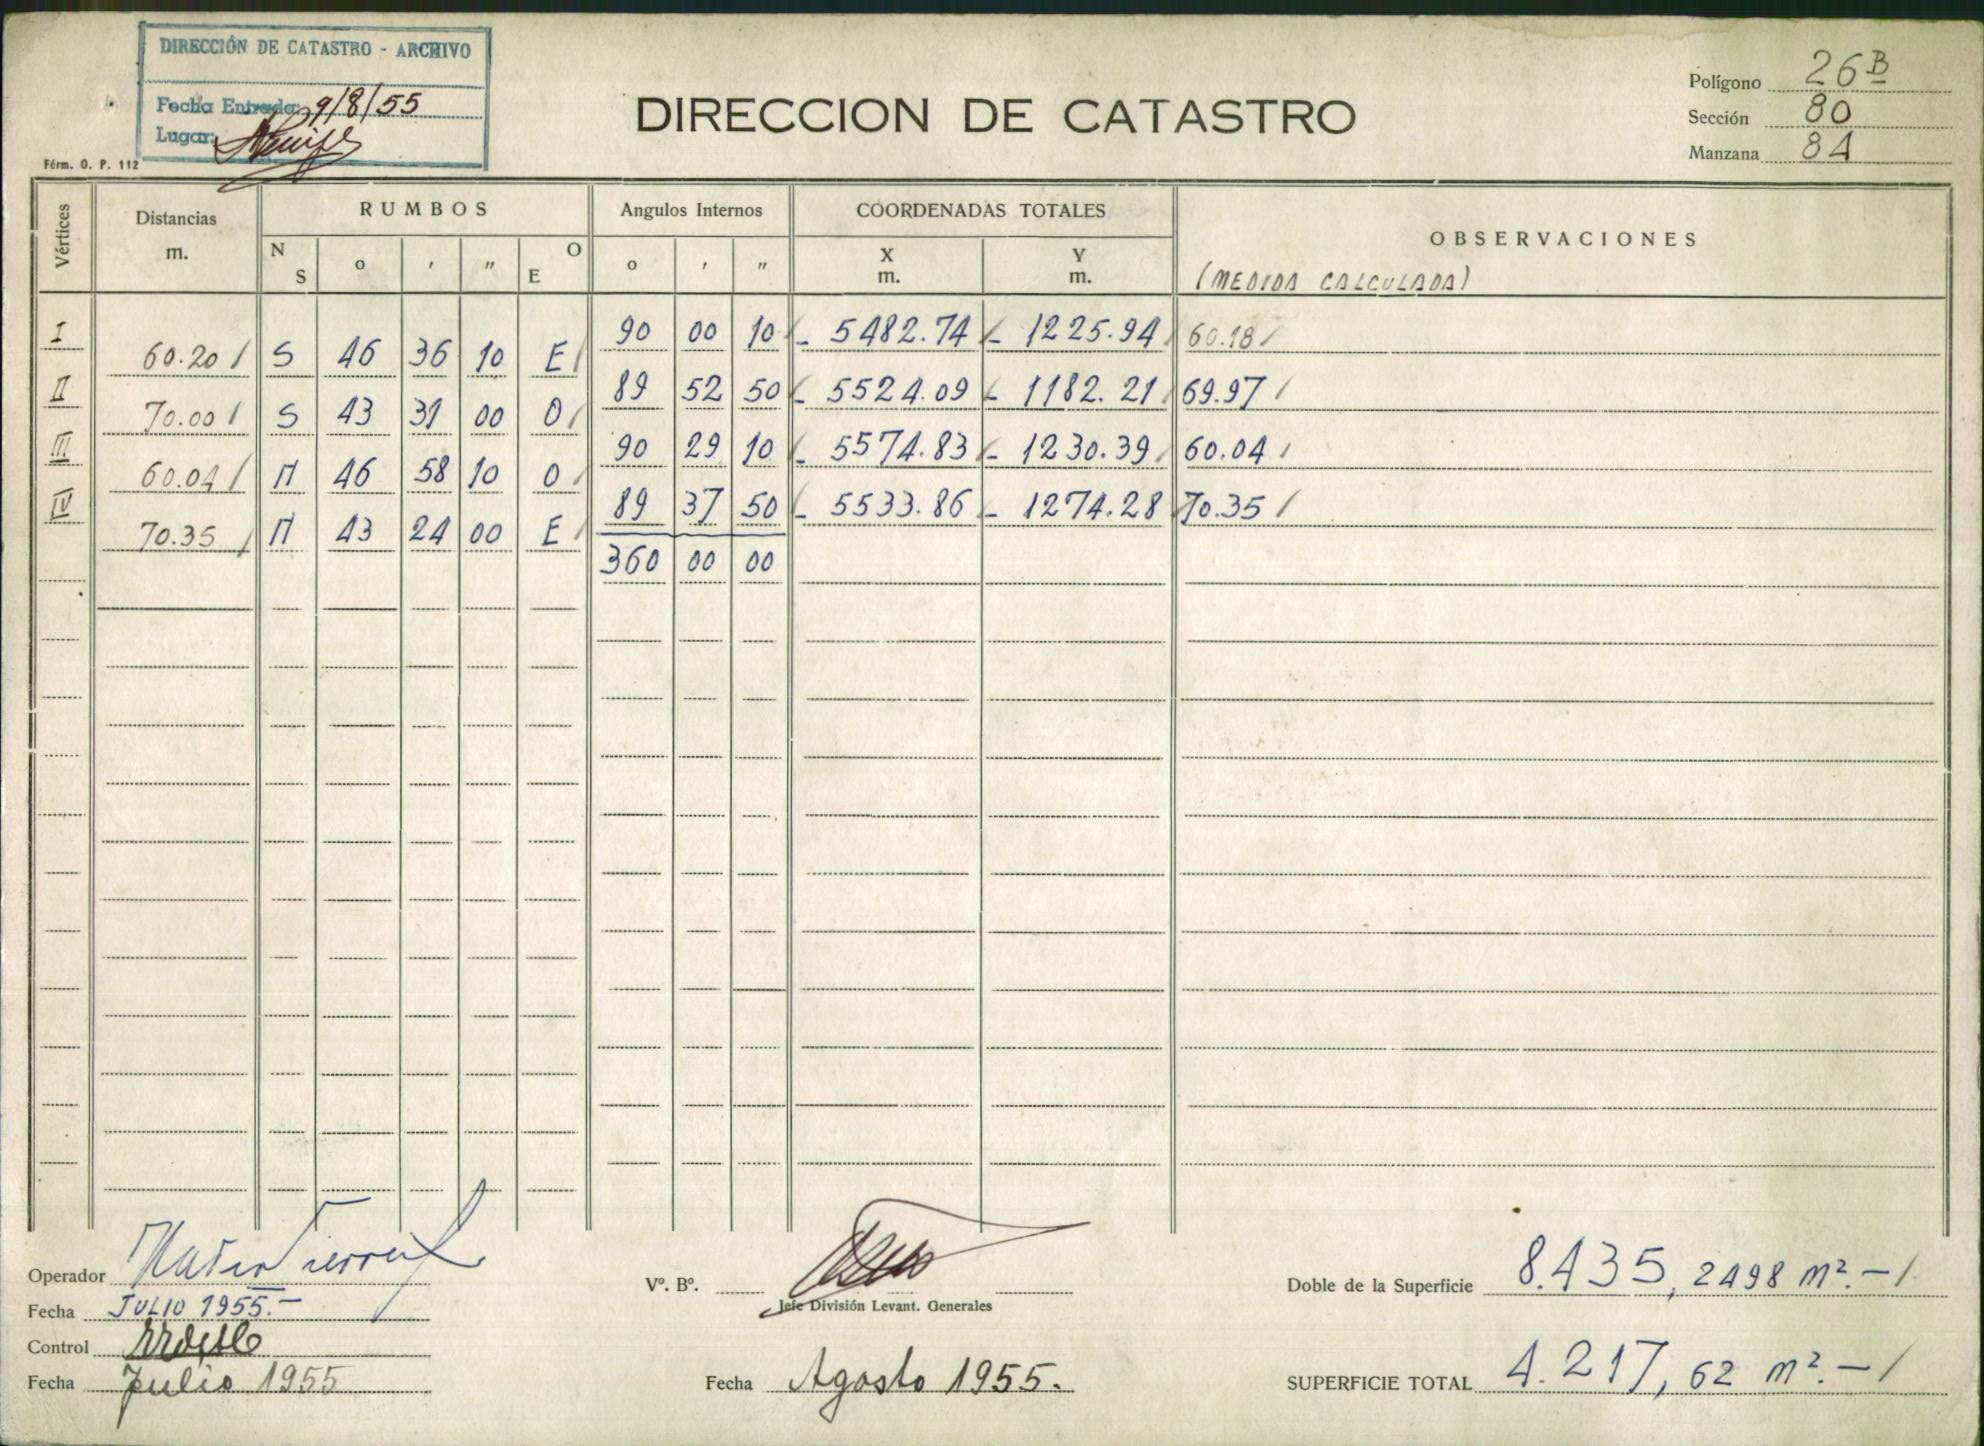 DIRECCIÓN DE CATASTRO - ARCHIVO
Fecha Entrada: 9/8/55
Lugar:
Férm. O. P. 112
DIRECCION DE CATASTRO
Polígono 26B
Sección 80
Manzana 84
Vértices Distancias m. RUMBOS Angulos Internos COORDENADAS TOTALES OBSERVACIONES
N S o ' " O E o ' " X m. Y m. (MEDIDA CALCULADA)
I 90 00 10 - 5482.74 - 1225.94 60.18
60.20 S 46 36 10 E
II 89 52 50 - 5524.09 - 1182.21 69.97
70.00 S 43 31 00 O
III 90 29 10 - 5574.83 - 1230.39 60.04
60.04 N 46 58 10 O
IV 89 37 50 - 5533.86 - 1274.28 70.35
70.35 N 43 24 00 E
360 00 00
Operador
Fecha JULIO 1955.-
Control
Fecha Julio 1955
Vº. Bº.
Jefe División Levant. Generales
Fecha Agosto 1955.
Doble de la Superficie 8.435,2498 m².-
SUPERFICIE TOTAL 4.217,62 m².-